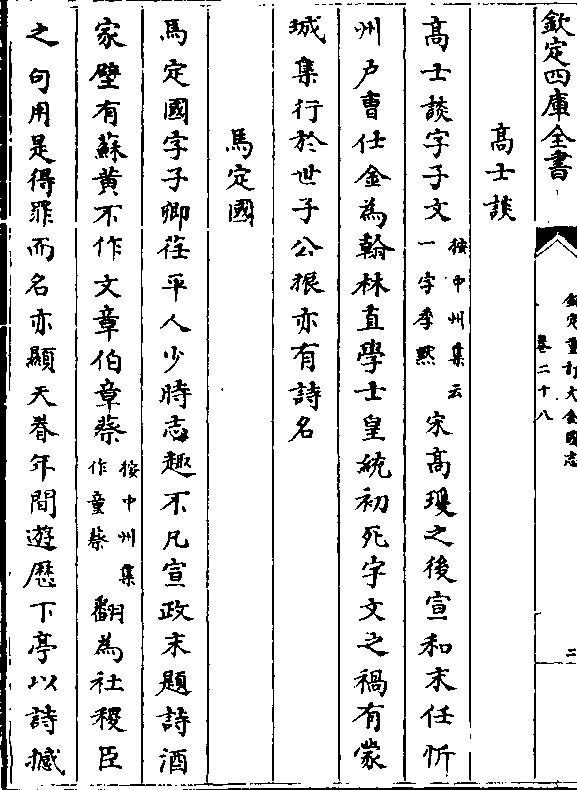 欽定四庫全書
欽定重訂大金國志
卷二十八
二
高士談
高士談字子文按中州集云一字季黙宋髙瓊之後宣和末任忻
州户曹仕金為翰林直學士皇統初死字文之禍有蒙
城集行於世子公振亦有詩名
馬定國
馬定國字子卿茌平人少時志趣不凡宣政末題詩酒
家壁有蘇黄不作文章伯章蔡按中州集作童蔡翻為社稷臣
之句用是得罪而名亦顯天眷年間遊歴下亭以詩撼